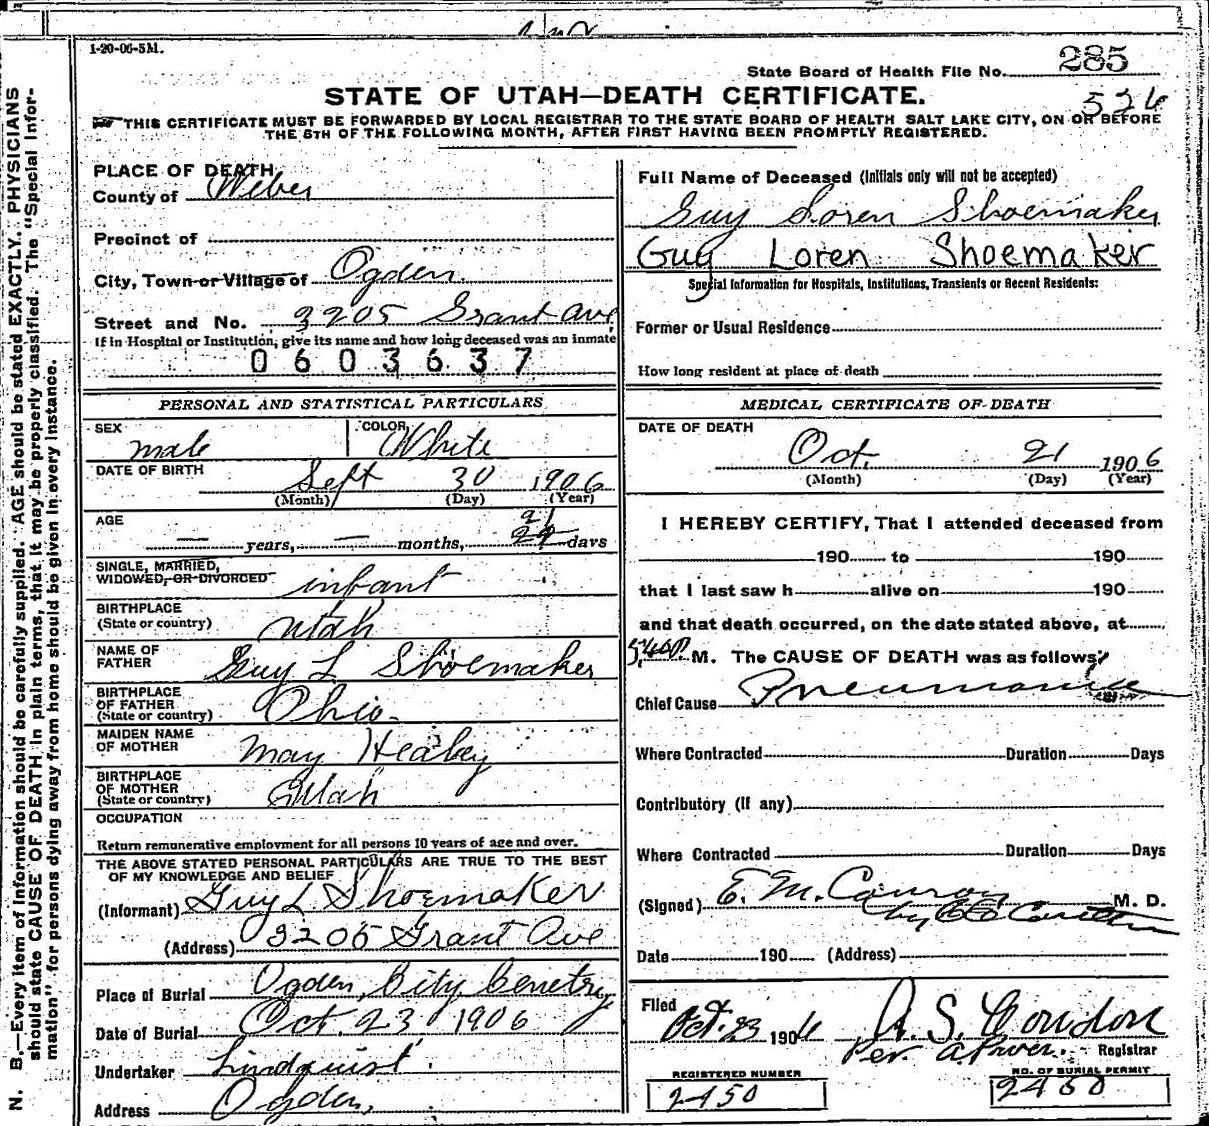 1-20-06-5M.
State Board of Health File No. 285
STATE OF UTAH—DEATH CERTIFICATE.
526
THIS CERTIFICATE MUST BE FORWARDED BY LOCAL REGISTRAR TO THE STATE BOARD OF HEALTH SALT LAKE CITY, ON OR BEFORE
THE 5TH OF THE FOLLOWING MONTH, AFTER FIRST HAVING BEEN PROMPTLY REGISTERED.
N. B.—Every item of information should be carefully supplied. AGE should be stated EXACTLY. PHYSICIANS
should state CAUSE OF DEATH in plain terms, that it may be properly classified. The "Special Infor-
mation" for persons dying away from home should be given in every instance.
PLACE OF DEATH
County of Weber
Precinct of
City, Town or Village of Ogden.
Street and No. 3205 Grant Ave
If in Hospital or Institution, give its name and how long deceased was an inmate
0603637
PERSONAL AND STATISTICAL PARTICULARS
SEX male COLOR White
DATE OF BIRTH Sept 30 1906
(Month) (Day) (Year)
AGE — years, — months, 21 days
SINGLE, MARRIED,
WIDOWED, OR DIVORCED infant
BIRTHPLACE
(State or country) Utah
NAME OF
FATHER Guy L Shoemaker
BIRTHPLACE
OF FATHER
(State or country) Ohio
MAIDEN NAME
OF MOTHER May
BIRTHPLACE
OF MOTHER
(State or country) Utah
OCCUPATION
Return remunerative employment for all persons 10 years of age and over.
THE ABOVE STATED PERSONAL PARTICULARS ARE TRUE TO THE BEST
OF MY KNOWLEDGE AND BELIEF
(Informant) Guy L Shoemaker
(Address) 3205 Grant Ave
Place of Burial Ogden City Cemetry
Date of Burial Oct. 23 1906
Undertaker Lindquist
Address Ogden,
Full Name of Deceased (Initials only will not be accepted)
Guy Loren Shoemaker
Guy Loren Shoemaker
Special Information for Hospitals, Institutions, Transients or Recent Residents:
Former or Usual Residence
How long resident at place of death
MEDICAL CERTIFICATE OF DEATH
DATE OF DEATH
Oct. 21 1906
(Month) (Day) (Year)
I HEREBY CERTIFY, That I attended deceased from
190 to 190
that I last saw h alive on 190
and that death occurred, on the date stated above, at
M. The CAUSE OF DEATH was as follows:
Chief Cause Pneumonia
Where Contracted Duration Days
Contributory (if any)
Where Contracted Duration Days
(Signed) E. M. Conroy M. D.
Date 190 (Address)
Filed
Oct. 23 1906 A. S. Condon
Per Registrar
REGISTERED NUMBER
2450
NO. OF BURIAL PERMIT
2450